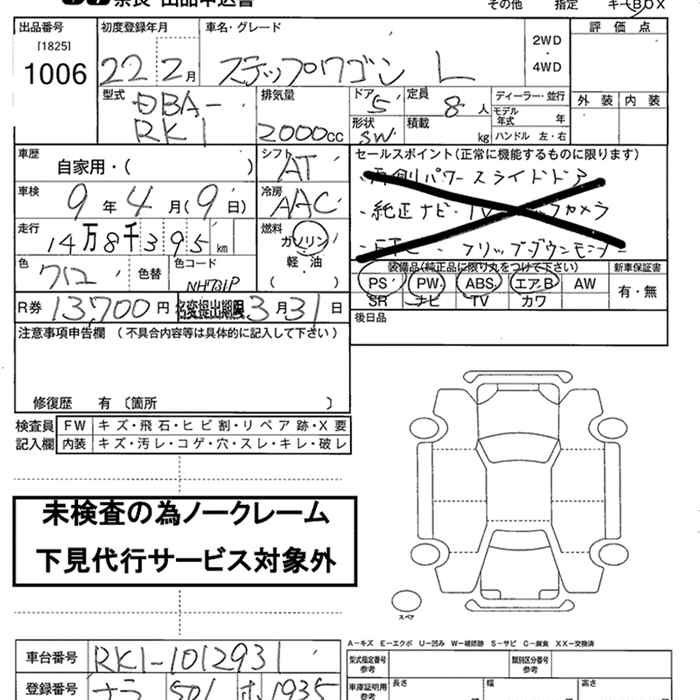 奈良 出品申込書
その他 指定 キーBOX
出品番号 初度登録年月 車名・グレード 評価点
[1825]
1006 22 2月 ステップワゴン L 2WD・4WD
型式 排気量 ドア 定員 ディーラー・並行 外装 内装
DBA-RK1 2000cc 5 8人 モデル年式 年
形状 積載
SW kg ハンドル 左・右
車歴 シフト セールスポイント(正常に機能するものに限ります)
自家用・( ) AT ・両側パワースライドドア
車検 冷房
9年4月(9日) AAC ・純正ナビ・TV カメラ
走行 燃料
14万8千395km ガソリン ・ETC ・フリップダウンモニター
色 色替 色コード 軽・油
クロ NH731P ( )
装備品(純正品に限り丸をつけて下さい) 新車保証書
PS PW ABS エアB AW 有・無
SR ナビ TV カワ
R券 13,700円 名変提出期限 3月31日
後日品
注意事項申告欄 (不具合内容等は具体的に記入して下さい)
修復歴 有〔箇所 〕
検査員 FW キズ・飛石・ヒビ割・リペア跡・X要
記入欄 内装 キズ・汚レ・コゲ・穴・スレ・キレ・破レ
未検査の為ノークレーム
下見代行サービス対象外
スペア
A−キズ E−エクボ U−凹み W−補修跡 S−サビ C−腐食 XX−交換済
車台番号 RK1-1012931 型式指定番号 参考 類別区分番号 参考
登録番号 ナラ 501 ホ 1935 車庫証明用 参考 長さ 幅 高さ